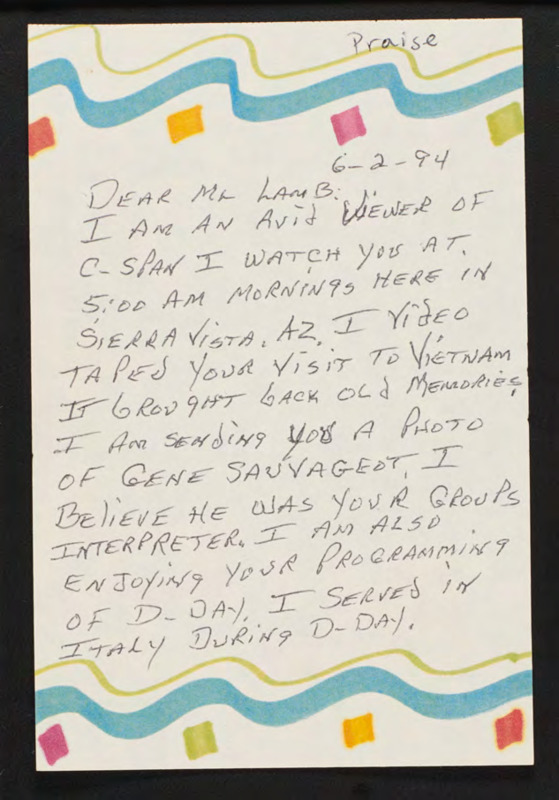 Praise
6-2-94
DEAR MR LAMB:
I AM AN AVid VIEWER OF
C-SPAN I WATCH YOU AT.
5:00 AM MORNINGS HERE IN
SIERRA VISTA, AZ. I VIdEO
TAPED YOUR VISIT TO VIETNAM
IT BROUGHT BACK OLd MEMORIES,
I AM SENdING YOU A PHOTO
OF GENE SAUVAGEOT, I
BElIEVE HE WAS YOUR GROUPS
INTERPRETER. I AM ALSO
ENJOYING YOUR PROGRAMMING
OF D-DAY. I SERVEd IN
ITALY DURING D-DAY.